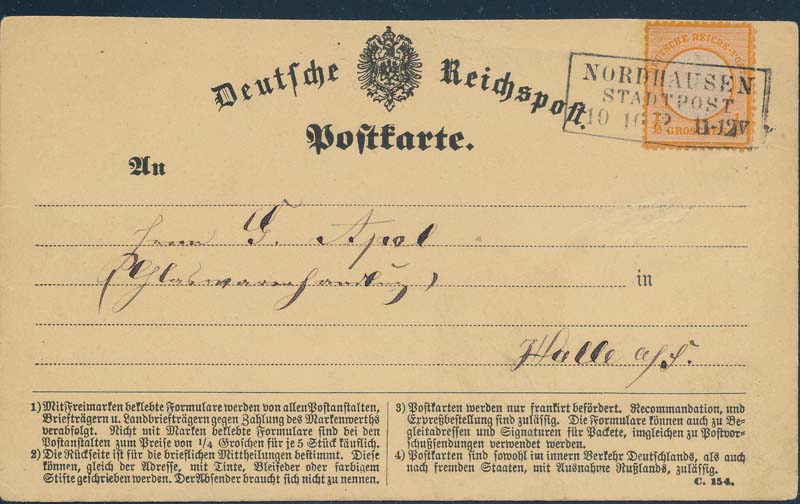 Deutsche Reichspost.
Postkarte.
DEUTSCHE REICHS-POST
NORDHAUSEN
STADTPOST
10 10 72 11-12V
1/2 GROSCHEN
An
Herrn G. Apel
(Glaswarenhandlung)
in
Halle a/S.
1) Mit Freimarken beklebte Formulare werden von allen Postanstalten,
Briefträgern u. Landbriefträgern gegen Zahlung des Markenwerths
verabfolgt. Nicht mit Marken beklebte Formulare sind bei den
Postanstalten zum Preise von 1/4 Groschen für je 5 Stück käuflich.
2) Die Rückseite ist für die brieflichen Mittheilungen bestimmt. Diese
können, gleich der Adresse, mit Tinte, Bleifeder oder farbigem
Stifte geschrieben werden. Der Absender braucht sich nicht zu nennen.
3) Postkarten werden nur frankirt befördert. Recommandation, und
Expreßbestellung sind zulässig. Die Formulare können auch zu Be-
gleitadressen und Signaturen für Packete, imgleichen zu Postvor-
schußsendungen verwendet werden.
4) Postkarten sind sowohl im innern Verkehr Deutschlands, als auch
nach fremden Staaten, mit Ausnahme Rußlands, zulässig.
C. 154.